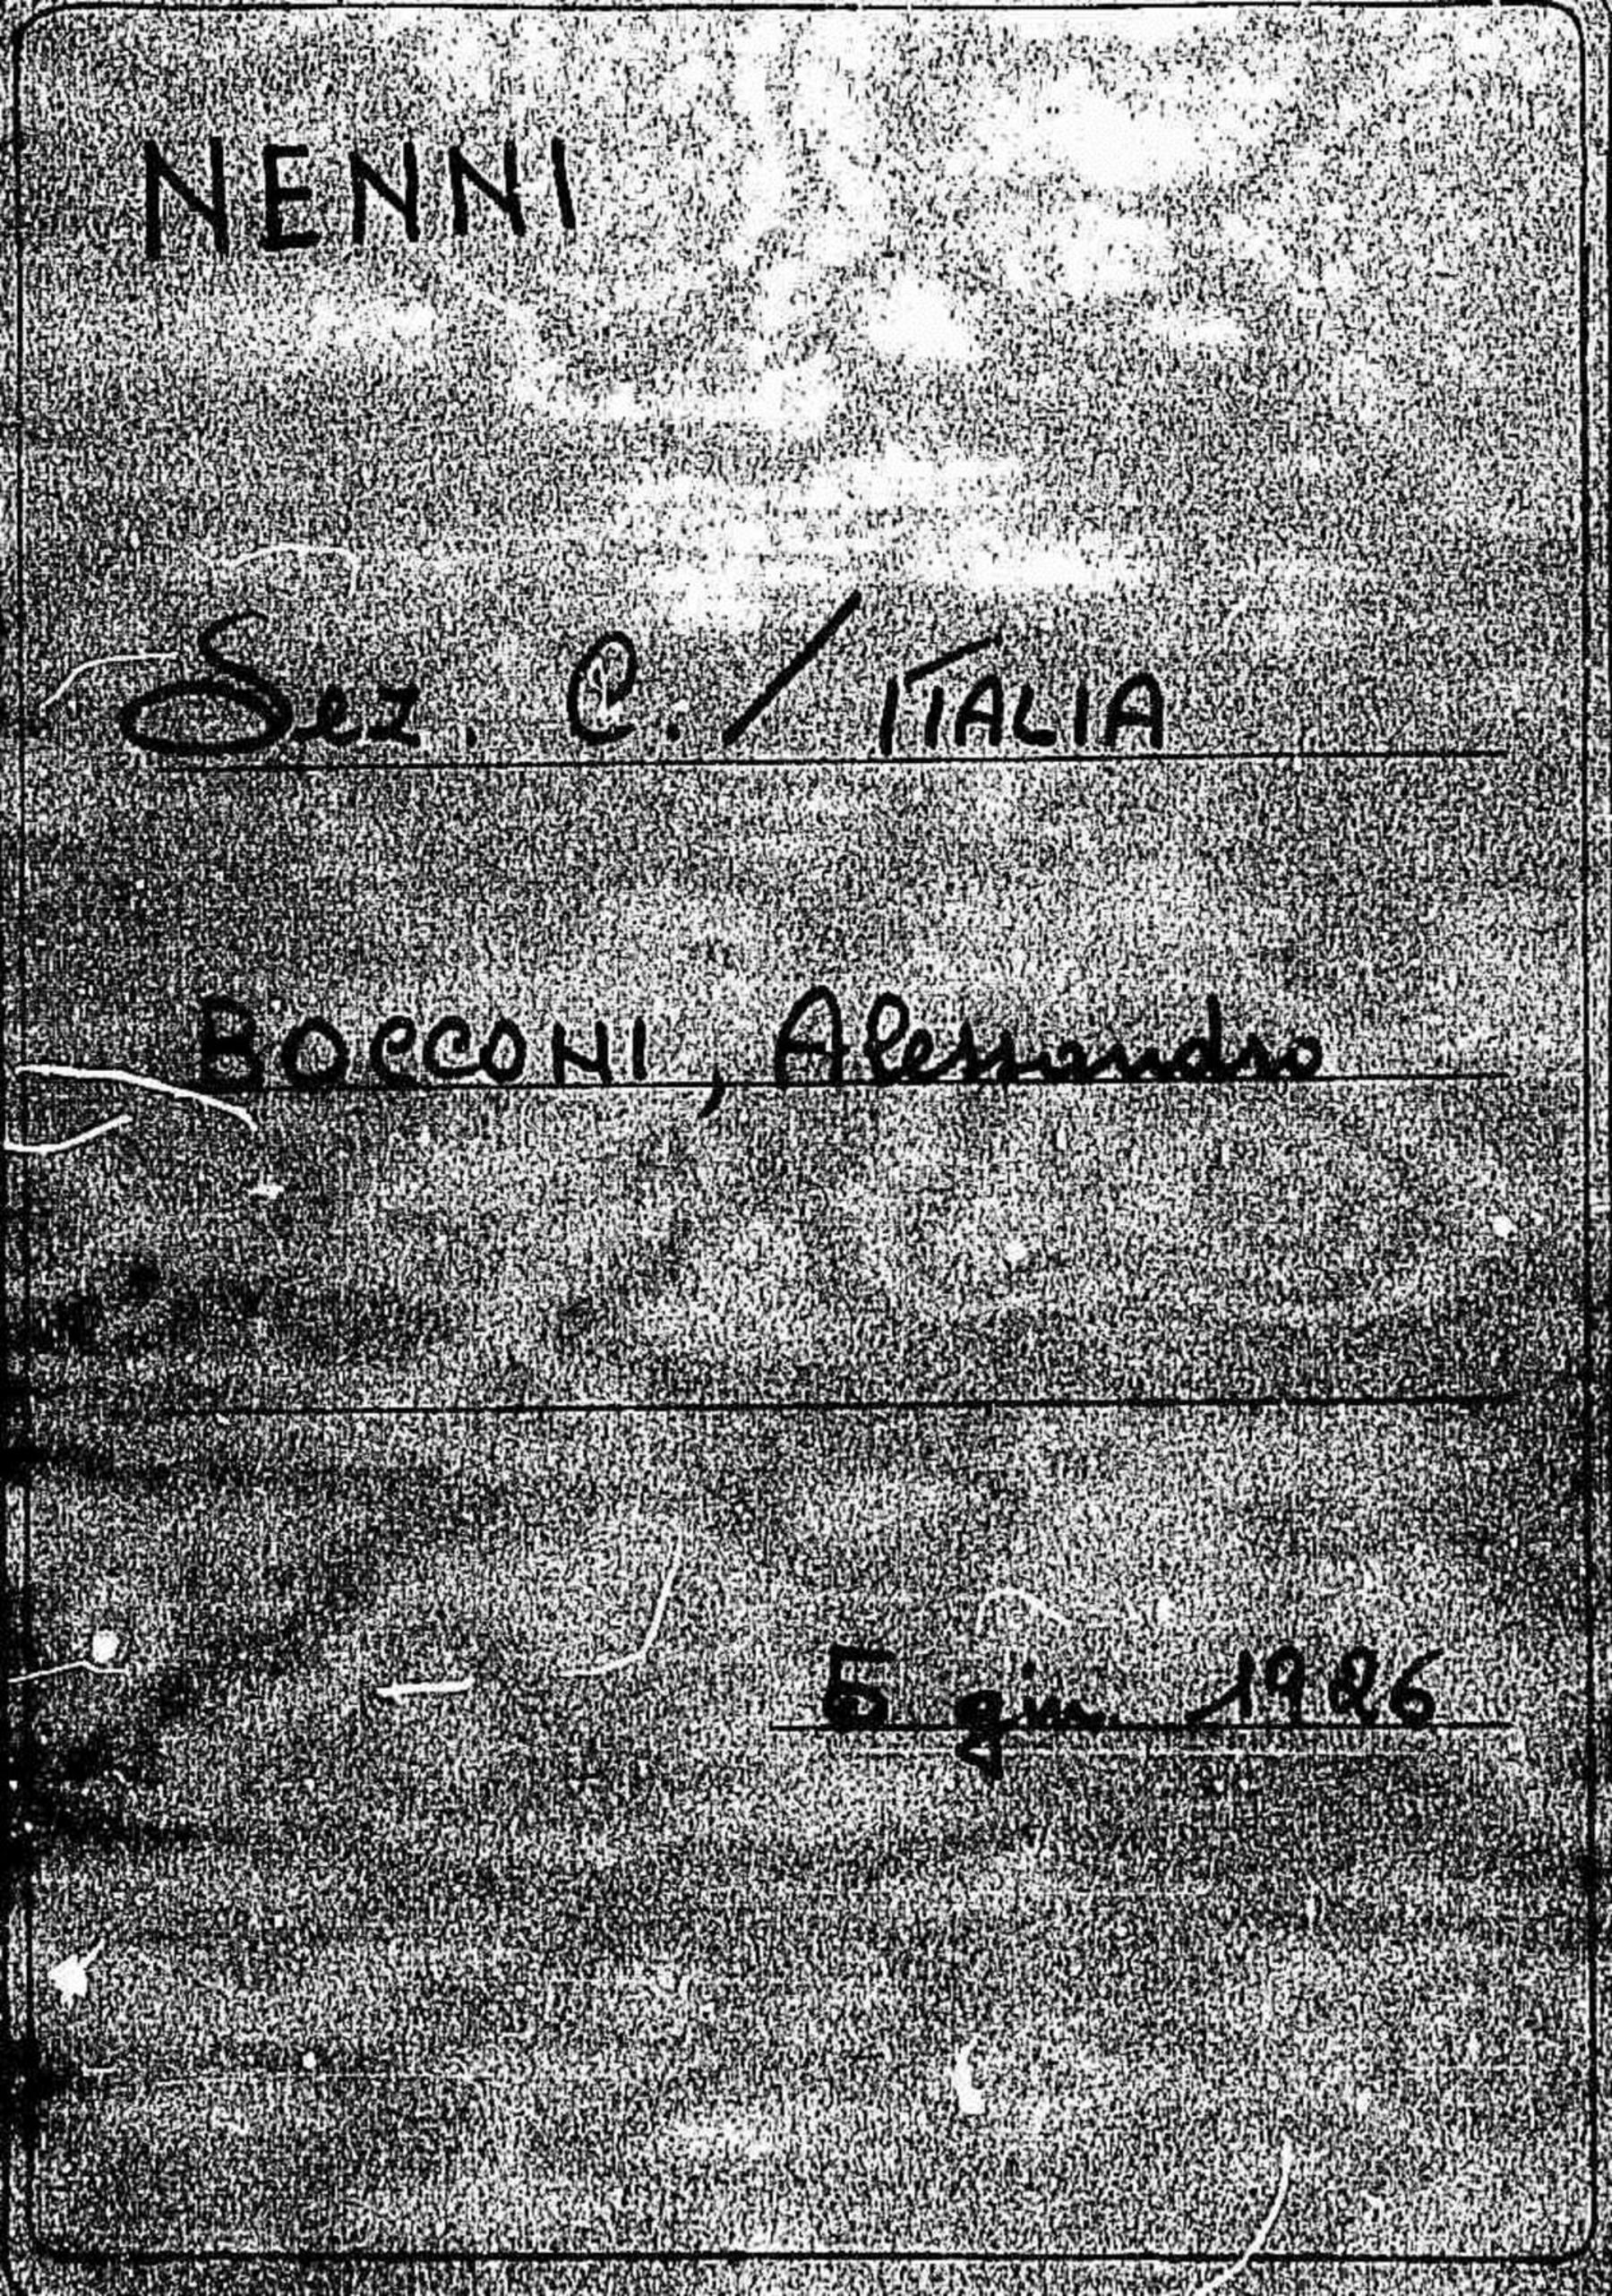 NENNI
Sez. C. / ITALIA
BOCCONI, Alessandro
5 giu. 1926